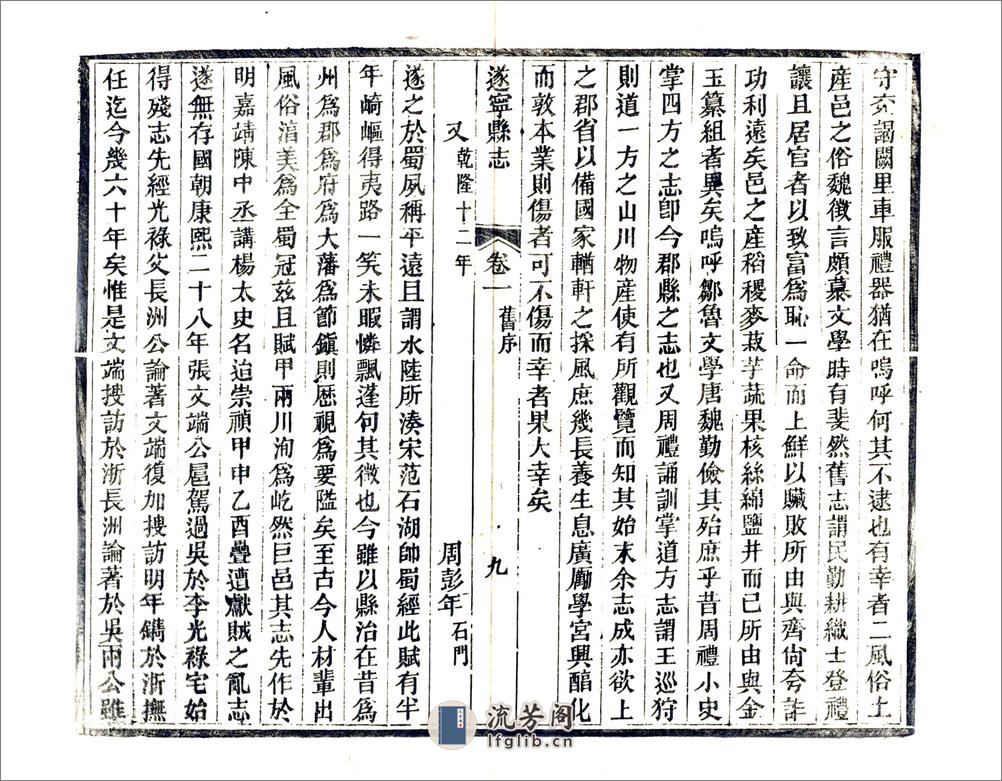 守奕謁闕里車服禮器猶在嗚呼何其不逮也有幸者二風俗土
產邑之俗魏徵言頗慕文學時有斐然舊志謂民勤耕織士登禮
讓且居官者以致富爲恥一命而上鮮以贓敗所由與齊尙夸詐
功利遠矣邑之產稻稷麥菽芋蔬果核絲綿鹽井而已所由與金
玉纂組者異矣嗚呼鄒魯文學唐魏勤儉其殆庶乎昔周禮小史
掌四方之志卽今郡縣之志也又周禮誦訓掌道方志謂王巡狩
則道一方之山川物產使有所觀覽而知其始末余志成亦欲上
之郡省以備國家輶軒之採風庶幾長養生息廣勵學宮興醻化
而敦本業則傷者可不傷而幸者果大幸矣
遂寧縣志 卷一 舊序 九
又 乾隆十二年 周彭年 石門
遂之於蜀夙稱平遠且謂水陸所湊宋范石湖帥蜀經此賦有半
年崎嶇得夷路一笑未暇憐飄蓬何其微也今雖以縣治在昔爲
州爲郡爲府爲大藩爲節鎭則歷視爲要隘矣至古今人材輩出
風俗湻美爲全蜀冠茲且賦甲兩川洵爲屹然巨邑其志先作於
明嘉靖陳中丞講楊太史名迨崇禎甲申乙酉疊遭獻賊之亂志
遂無存國朝康熙二十八年張文端公扈駕過吳於李光祿宅始
得殘志先經光祿父長洲公論著文端復加搜訪明年鐫於浙撫
任迄今幾六十年矣惟是文端搜訪於浙長洲論著於吳兩公雖
流芳阁
lfglib.cn